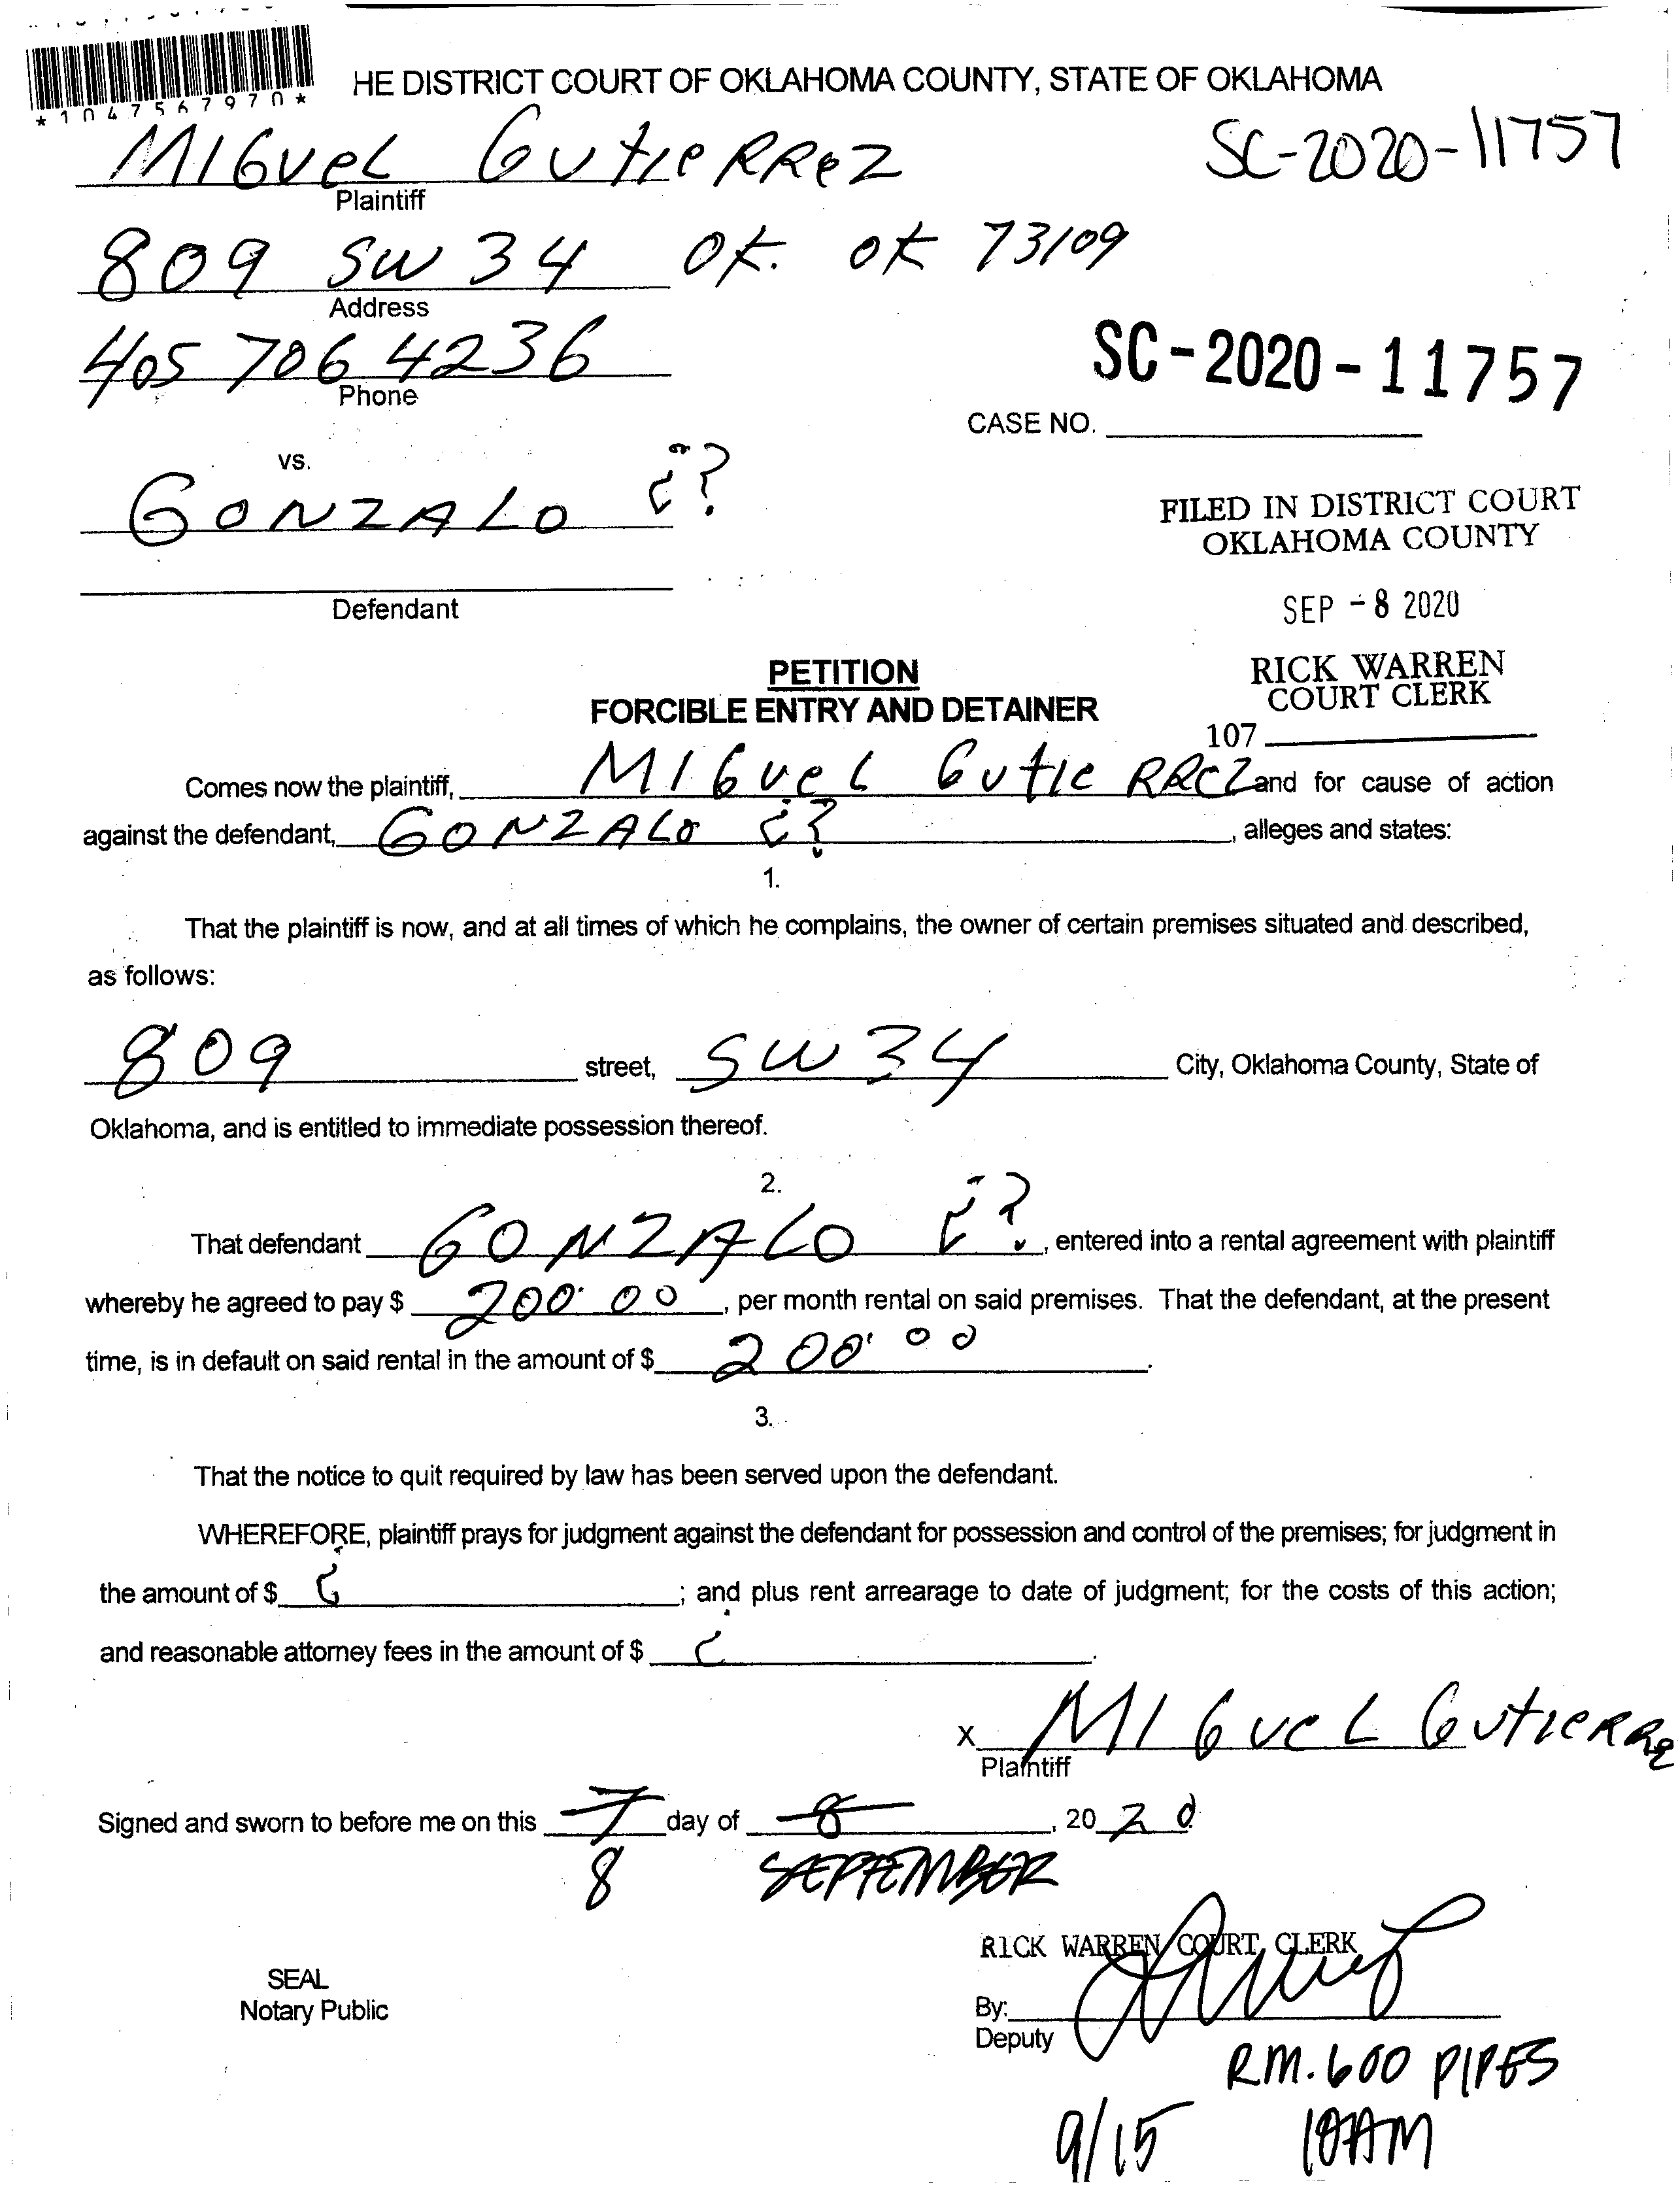 *1047567970*
HE DISTRICT COURT OF OKLAHOMA COUNTY, STATE OF OKLAHOMA
MIGUEL GUTIERREZ
SC-2020-11757
Plaintiff
809 SW 34 OK. OK 73109
Address
405 706 4236
Phone
SC-2020-11757
CASE NO.
vs.
GONZALO ¿?
FILED IN DISTRICT COURT
OKLAHOMA COUNTY
Defendant
SEP -8 2020
RICK WARREN
COURT CLERK
107
PETITION
FORCIBLE ENTRY AND DETAINER
Comes now the plaintiff, MIGUEL GUTIERREZ and for cause of action
against the defendant, GONZALO ¿?, alleges and states:
1.
That the plaintiff is now, and at all times of which he complains, the owner of certain premises situated and described,
as follows:
809 street, SW 34 City, Oklahoma County, State of
Oklahoma, and is entitled to immediate possession thereof.
2.
That defendant GONZALO ¿?, entered into a rental agreement with plaintiff
whereby he agreed to pay $ 200.00, per month rental on said premises. That the defendant, at the present
time, is in default on said rental in the amount of $ 200.00.
3.
That the notice to quit required by law has been served upon the defendant.
WHEREFORE, plaintiff prays for judgment against the defendant for possession and control of the premises; for judgment in
the amount of $ ¿; and plus rent arrearage to date of judgment; for the costs of this action;
and reasonable attorney fees in the amount of $ ¿.
X MIGUEL GUTIERRE
Plaintiff
Signed and sworn to before me on this 7 day of 8, 2020
8 SEPTEMBER
RICK WARREN COURT CLERK
SEAL
Notary Public
By:
Deputy
RM. 600 PIPES
9/15 10AM